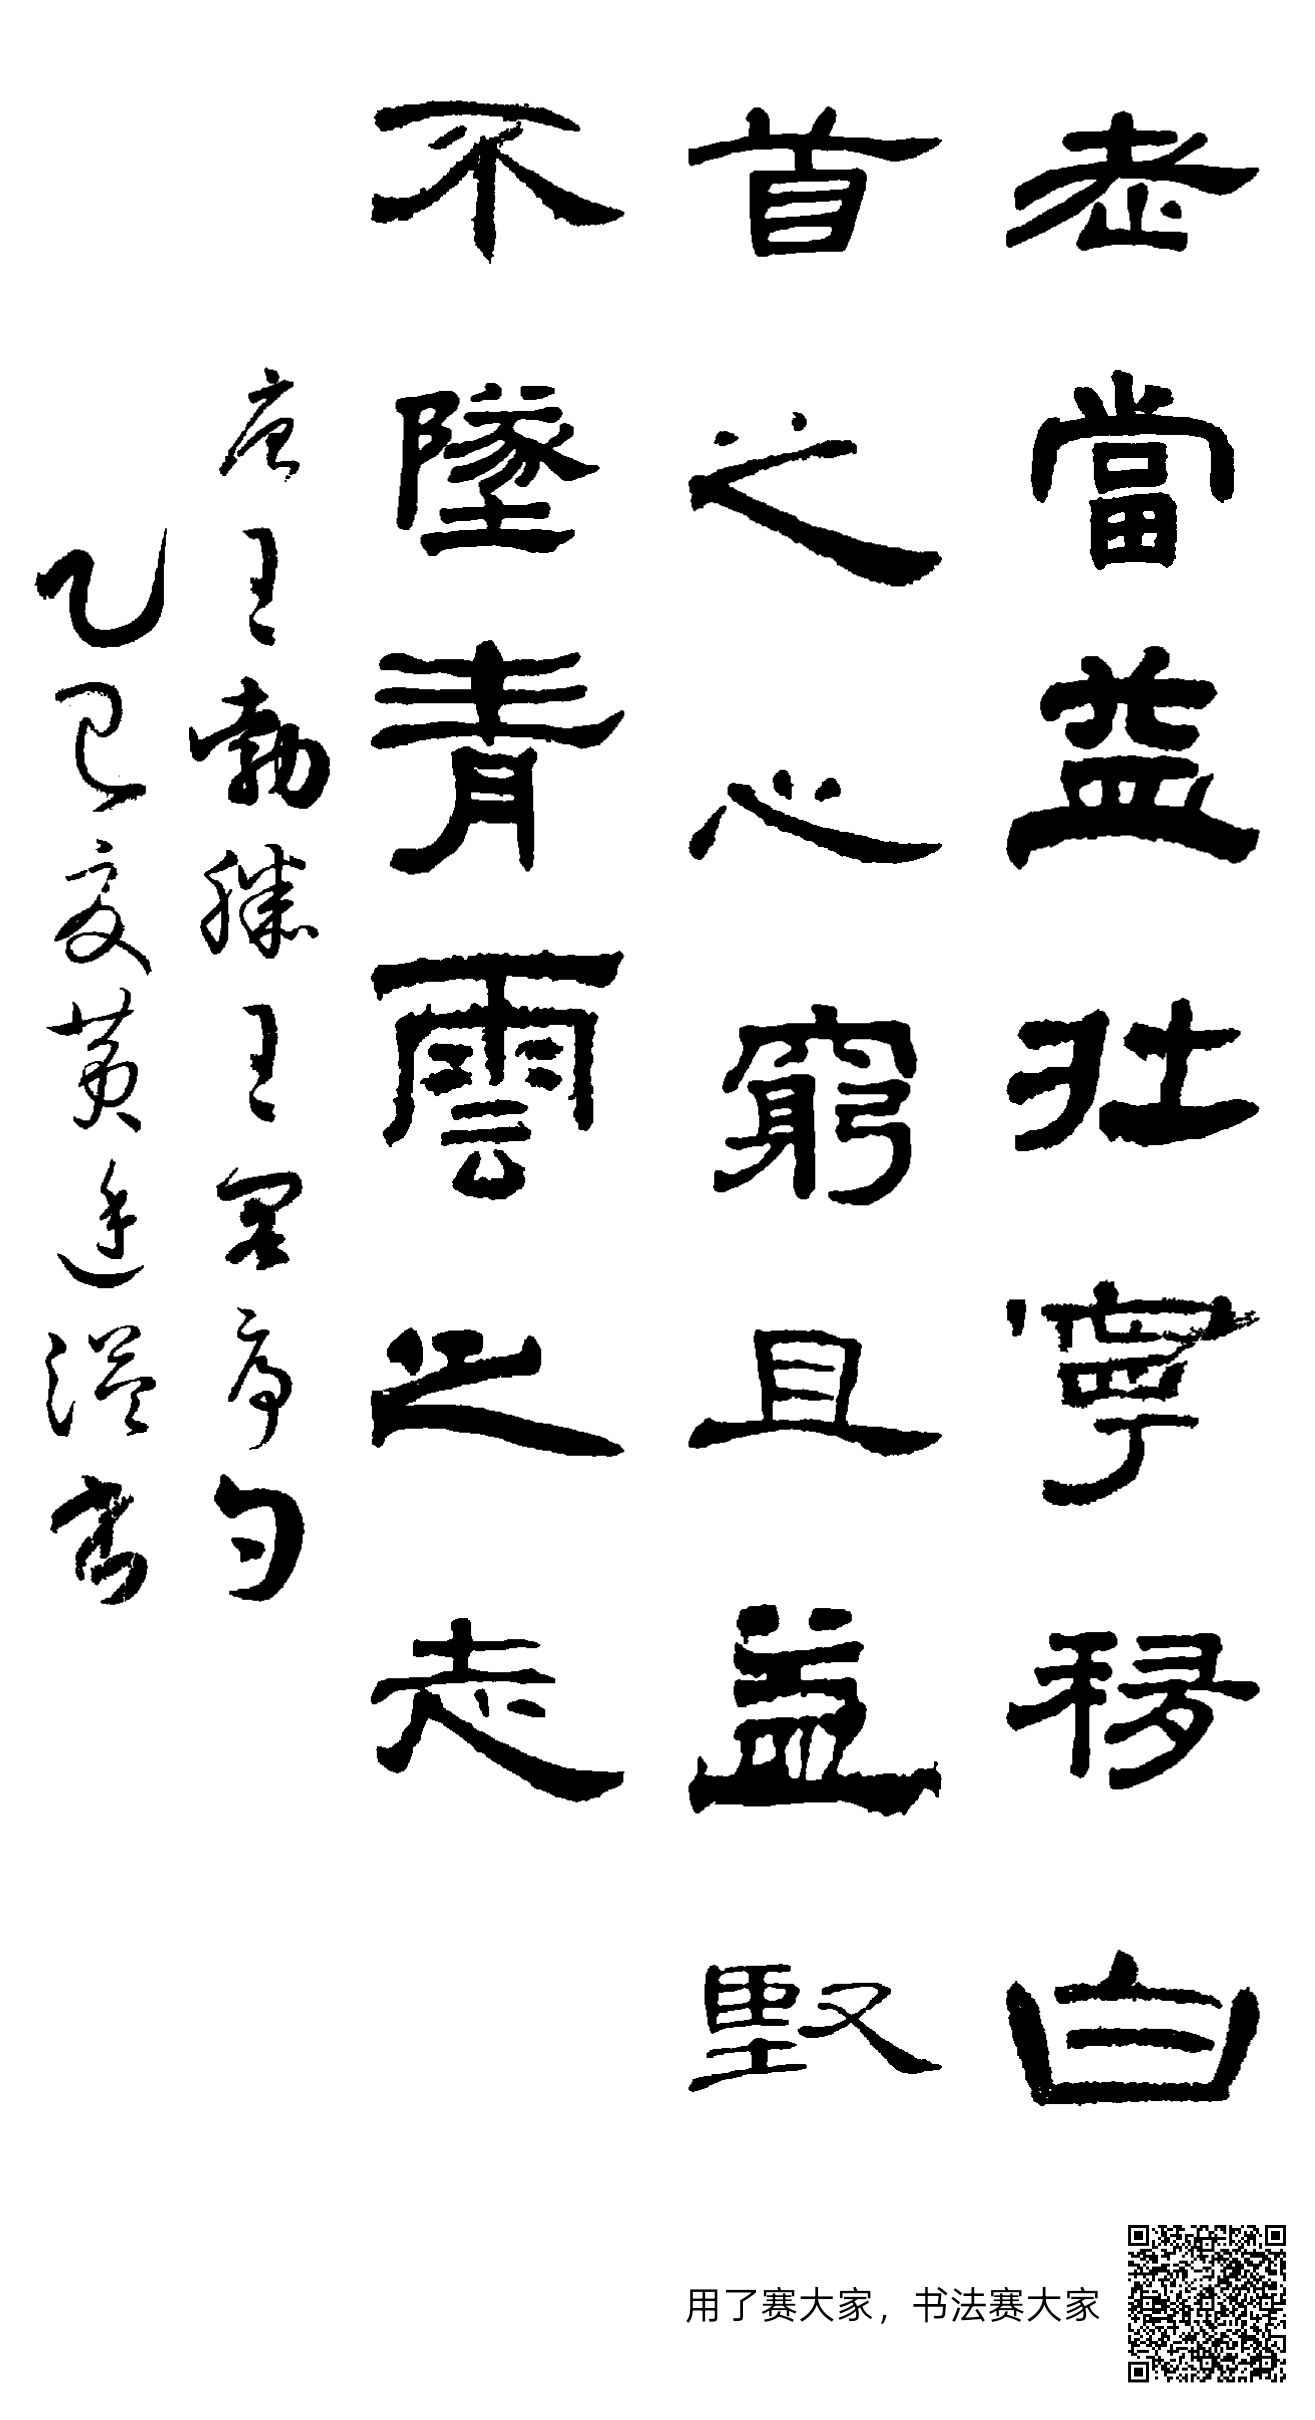 老當益壯寧移白
首之心窮且益堅
不墜青雲之志
唐王勃滕王閣序句
乙巳夏黃溢
用了赛大家，书法赛大家